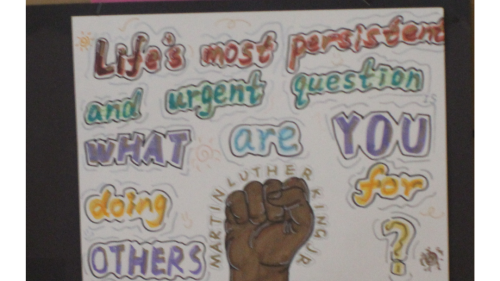 Life's most persistent
and urgent question
is
WHAT are YOU
doing for
OTHERS ?
MARTIN LUTHER KING JR